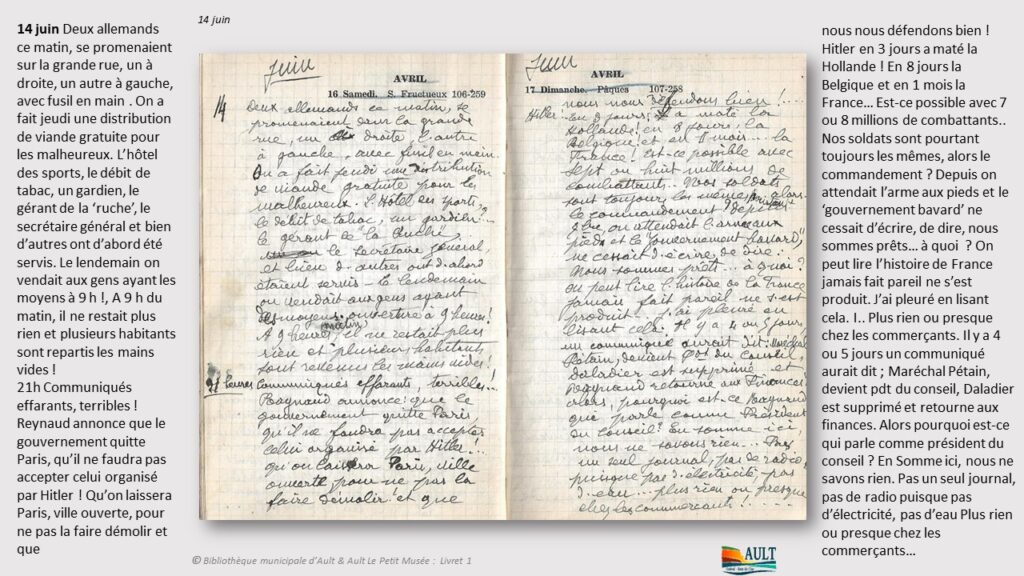 14 juin
14 juin Deux allemands
ce matin, se promenaient
sur la grande rue, un à
droite, un autre à gauche,
avec fusil en main . On a
fait jeudi une distribution
de viande gratuite pour
les malheureux. L’hôtel
des sports, le débit de
tabac, un gardien, le
gérant de la ‘ruche’, le
secrétaire général et bien
d’autres ont d’abord été
servis. Le lendemain on
vendait aux gens ayant les
moyens à 9 h !, A 9 h du
matin, il ne restait plus
rien et plusieurs habitants
sont repartis les mains
vides !
21h Communiqués
effarants, terribles !
Reynaud annonce que le
gouvernement quitte
Paris, qu’il ne faudra pas
accepter celui organisé
par Hitler ! Qu’on laissera
Paris, ville ouverte, pour
ne pas la faire démolir et
que
Juin
AVRIL
16 Samedi. S. Fructueux 106-259
14 Deux allemands ce matin, se
promenaient dans la grande
rue, un à droite l'autre
à gauche, avec fusil en main.
On a fait jeudi une distribution
de viande gratuite pour les
malheureux. L'Hôtel des Sports,
le débit de tabac, un gardien...
le gérant de "la Ruche"
le secrétaire général
et bien d'autres ont d'abord
étaient servis - le lendemain
on vendait aux gens ayant
des moyens ouverture à 9 heures!
A 9 heures, il ne restait plus
rien et plusieurs habitants
sont revenus les mains vides!
21 heures Communiqués effarants, terribles...!
Raynaud annonce: que le
gouvernement quitte Paris,
qu'il ne faudra pas accepter
celui organisé par Hitler!
qu'on laissera Paris, ville
ouverte, pour ne pas la
faire démolir et que
Juin
AVRIL
17 Dimanche. Pâques 107-258
nous nous défendons bien!....
Hitler en 3 jours a maté la
Hollande! en 8 jours, la
Belgique! et en 1 mois la
France! est-ce possible avec
sept ou huit millions de
combattants. Nos soldats
sont toujours les mêmes, alors
le commandement? depuis
on attendait l'arme aux
pieds et le "Gouvernement bavard"
ne cessait d'écrire, de dire:
Nous sommes prêts... à quoi?
On peut lire l'histoire de la France
jamais fait pareil ne s'est
produit. J'ai pleuré en
lisant cela. Il y a 4 ou 5 jours,
un communiqué aurait dit: Maréchal
Pétain, devient Pdt du Conseil,
Daladier est supprimé et
Raynaud retourne aux Finances
alors, pourquoi est-ce Raynaud
qui parle comme Président
du Conseil? En somme ici
nous ne savons rien... Pas
un seul journal, pas de radio,
puisque pas d'électricité, pas
d'eau... plus rien ou presque
chez les commerçants!...
nous nous défendons bien !
Hitler en 3 jours a maté la
Hollande ! En 8 jours la
Belgique et en 1 mois la
France… Est-ce possible avec 7
ou 8 millions de combattants..
Nos soldats sont pourtant
toujours les mêmes, alors le
commandement ? Depuis on
attendait l’arme aux pieds et le
‘gouvernement bavard’ ne
cessait d’écrire, de dire, nous
sommes prêts… à quoi ? On
peut lire l’histoire de France
jamais fait pareil ne s’est
produit. J’ai pleuré en lisant
cela. I.. Plus rien ou presque
chez les commerçants. Il y a 4
ou 5 jours un communiqué
aurait dit ; Maréchal Pétain,
devient pdt du conseil, Daladier
est supprimé et retourne aux
finances. Alors pourquoi est-ce
qui parle comme président du
conseil ? En Somme ici, nous ne
savons rien. Pas un seul journal,
pas de radio puisque pas
d’électricité, pas d’eau Plus rien
ou presque chez les
commerçants…
© Bibliothèque municipale d’Ault & Ault Le Petit Musée : Livret 1
AULT